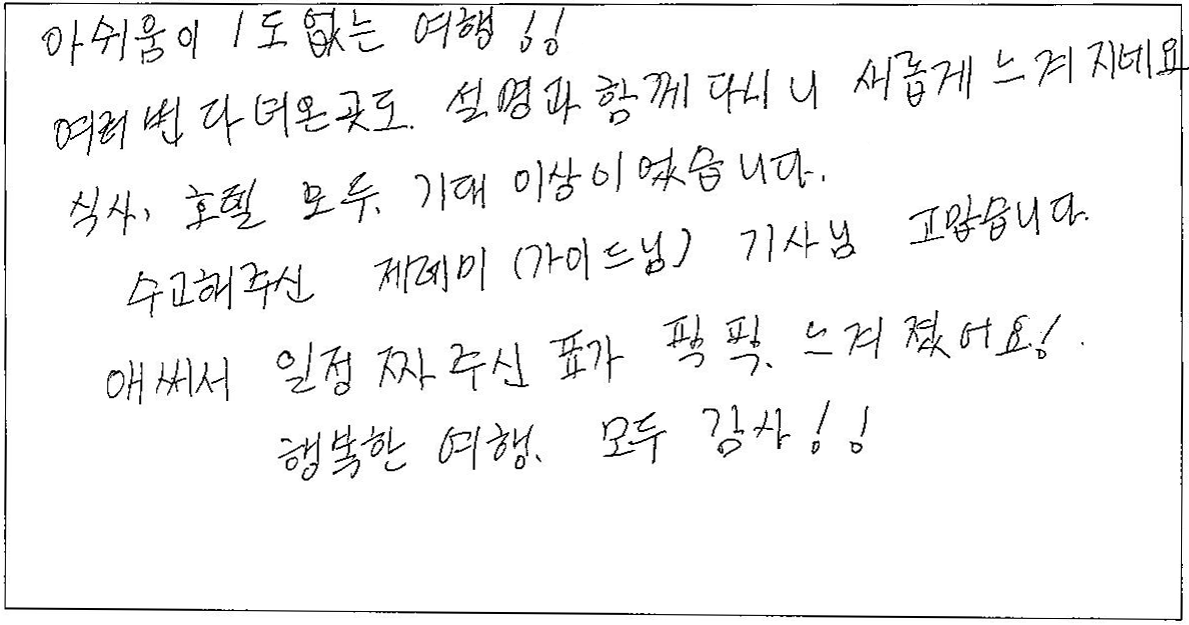 아쉬움이 1도 없는 여행!!
여러번 다녀온곳도. 설명과 함께 다시니 새롭게 느겨지네요
식사, 호텔 모두. 기대 이상이었습니다.
수고해주신 제레미 (가이드님) 기사님 고맙습니다.
애써서 일정 짜주신 표가 픽픽. 느겨졌어요!.
행복한 여행. 모두 감사!!